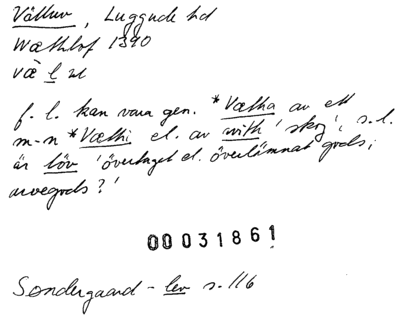 Vättuv, Luggude hd
Wæthlof 1390
f. l. kan vara gen. *Vætha av ett
m-n *Væthi el. av with 'skog', s. l.
är löv 'överlåtet el. överlämnat gods;
arvegods?'
00031861
Søndergaard - lev s. 116